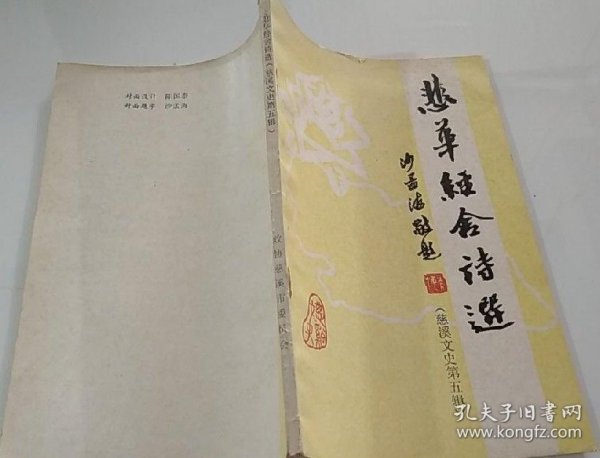 悲华经舍詩選
沙孟海敬题
(慈溪文史第五辑)
悲华经舍诗选(慈溪文史第五辑)
政协慈溪市委员会
封面设计 陈国泰
封面题字 沙孟海
孔夫子旧书网
www.kongfz.com